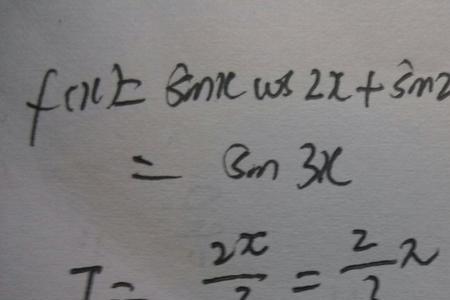 f(x) = sinx cos 2x + sin2
= sin 3x
T = 2π/3 = 2/3 π